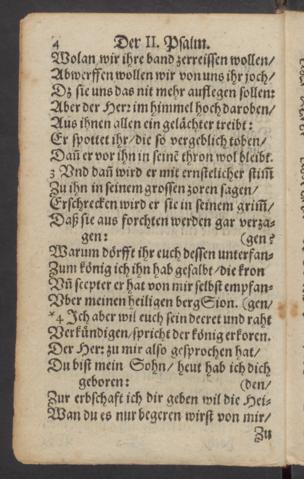 4 Der II. Psalm.
Wolan wir ihre band zerreissen wollen/
Abwerffen wollen wir von uns ihr joch/
Dz sie uns das nit mehr auflegen sollen:
Aber der Her: im himmel hoch daroben/
Aus ihnen allen ein gelächter treibt:
Er spottet ihr/ die so vergeblich toben/
Dañ er vor ihn in seinẽ thron wol bleibt.
3 Vnd dañ wird er mit ernstelicher stim̃
Zu ihn in seinem grossen zoren sagen/
Erschrecken wird er sie in seinem grim̃/
Daß sie aus forchten werden gar verza-
gen: (gen?
Warum dörfft ihr euch dessen unterfan-
Zum könig ich ihn hab gesalbt/ die kron
Vñ scepter er hat von mir selbst empfan-
Vber meinen heiligen berg Sion. (gen/
*4 Ich aber wil euch sein decret und raht
Verkündigen/ spricht der könig erkoren.
Der Her: zu mir also gesprochen hat/
Du bist mein Sohn/ heut hab ich dich
geboren: (den/
Zur erbschaft ich dir geben wil die Hei-
Wan du es nur begeren wirst von mir/
Zu